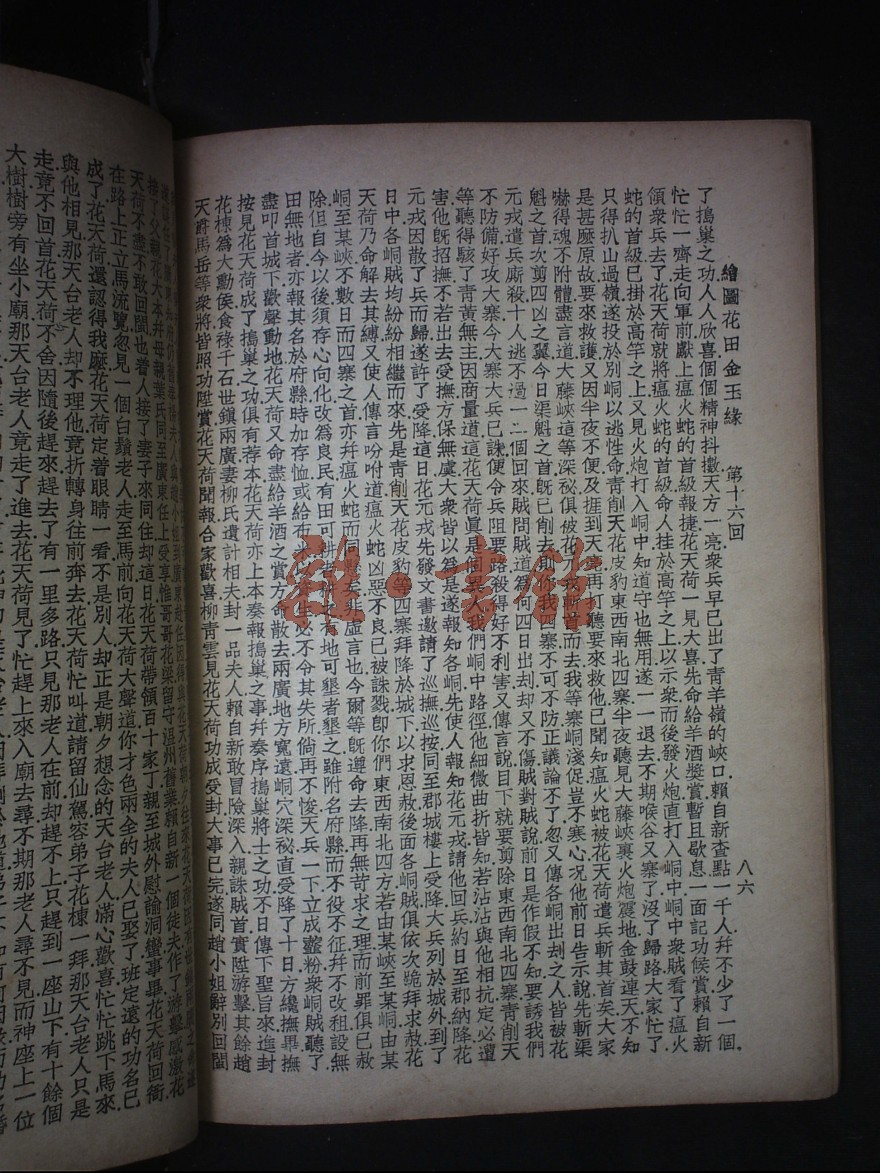 繪圖花田金玉緣　第十六回　八六
了搗巢之功人人欣喜個個精神抖擻天方一亮衆兵早已出了靑羊嶺的峽口賴自新查點一千人幷不少了一個
忙忙一齊走向軍前獻上瘟火蛇的首級報捷花天荷一見大喜先命給羊酒獎賞暫且歇息一面記功候賞賴自新
領衆兵去了花天荷就將瘟火蛇的首級命人挂於高竿之上以示衆而後發火炮直打入峒中峒中衆賊看了瘟火
蛇的首級已掛於高竿之上又見火炮打入峒中知道守也無用遂一一退去不期喉谷又寨了沒了歸路大家忙了
只得扒山過嶺遂投於別峒以逃性命靑削天花皮豹東西南北四寨半夜聽見大藤峽裏火炮震地金鼓連天不知
是甚麼原故要來救護又因半夜不便及捱到天再打聽要來救他已聞知瘟火蛇被花天荷遣兵斬其首矣大家
嚇得魂不附體盡言道大藤峽這等深祕俱被花元戎斬首而去我等寨峒淺促豈不寒心况他前日吿示說先斬渠
魁之首次剪四凶之翼今日渠魁之首旣已削去則你我四寨不可不防正議論不了忽又傳各峒出刦之人皆被花
元戎遣兵廝殺十人逃不過一二個回來賊問賊道爲何四日出刦却又不傷賊對賊說前日是作假不知要誘我們
不防備好攻大寨今大寨大兵已誅便令兵阻要路殺得好不利害又傳言說目下就要剪除東西南北四寨靑削天
等聽得駭了靑黃無主因商量道這花天荷眞是個異人我們峒中路徑他細微曲折皆知若沾沾與他相抗定必遭
害他旣招撫不若出去受撫方保無虞大衆皆以爲是遂報知各峒先使人報知花元戎請他回兵約日至郡納降花
元戎因散了兵而歸遂許了受降這日花元戎先發文書邀請了巡撫巡按同至郡城樓上受降大兵列於城外到了
日中各峒賊均紛紛相繼而來先是靑削天花皮豹等四寨拜降於城下以求恩赦後面各峒賊俱依次跪拜求赦花
天荷乃命解去其縛又使人傳言吩咐道瘟火蛇凶惡不良已被誅戮卽你們東西南北四方若由某峽至某峒由某
峒至某峽不數日而四寨之首亦幷瘟火蛇而同懸去非虛言也今爾等旣遵命去降再無苛求之理而前罪俱已赦
除但自今以後須存心向化改爲良民有田可耕者耕之有地可墾者墾之雖附名府縣而不役不征幷不改租設無
田無地者亦報其名於府縣時加存恤或給布必不令其失所倘再不悛天兵一下立成虀粉衆峒賊聽了
盡叩首城下歡聲動地花天荷又命盡給羊酒之賞方命散去兩廣地方寬遠峒穴深祕直受降了十日方纔撫畢撫
按見花天荷成了搗巢之功俱有荐本花天荷亦上本奏報搗巢之事幷奏序搗巢將士之功不日傳下聖旨來進封
花棟爲大勳侯食祿千石世鎭兩廣妻柳氏遺計相夫封一品夫人賴自新敢冒險深入親誅賊首實陞游擊其餘趙
天爵馬岳等衆將皆照功陞賞花天荷聞報合家歡喜柳靑雲見花天荷功成受封大事已完遂同趙小姐辭別回閩
接了父親花大本幷母親葉氏同至廣東任上受享惟哥哥花梁留守溫州舊業賴自新一個徒夫作了游擊感激花
天荷不盡不敢回閩也着人接了妻子來同住却這日花天荷帶領百十家丁親至城外慰諭洞蠻事畢花天荷回衙
在路上正立馬流覽忽見一個白鬚老人走至馬前向花天荷大聲道你才色兩全的夫人已娶了班定遠的功名已
成了花天荷還認得我麽花天荷定着眼睛一看不是別人却正是朝夕想念的天台老人滿心歡喜忙忙跳下馬來
與他相見那天台老人却不理他竟折轉身往前奔去花天荷忙叫道請留仙駕容弟子花棟一拜那天台老人只是
走竟不回首花天荷不舍因隨後趕來趕去了有一里多路只見那老人在前却趕不上只趕到一座山下有十餘個
大樹樹旁有坐小廟那天台老人竟走了進去花天荷見了忙趕上來入廟去尋不期那老人尋不見而神座上一位